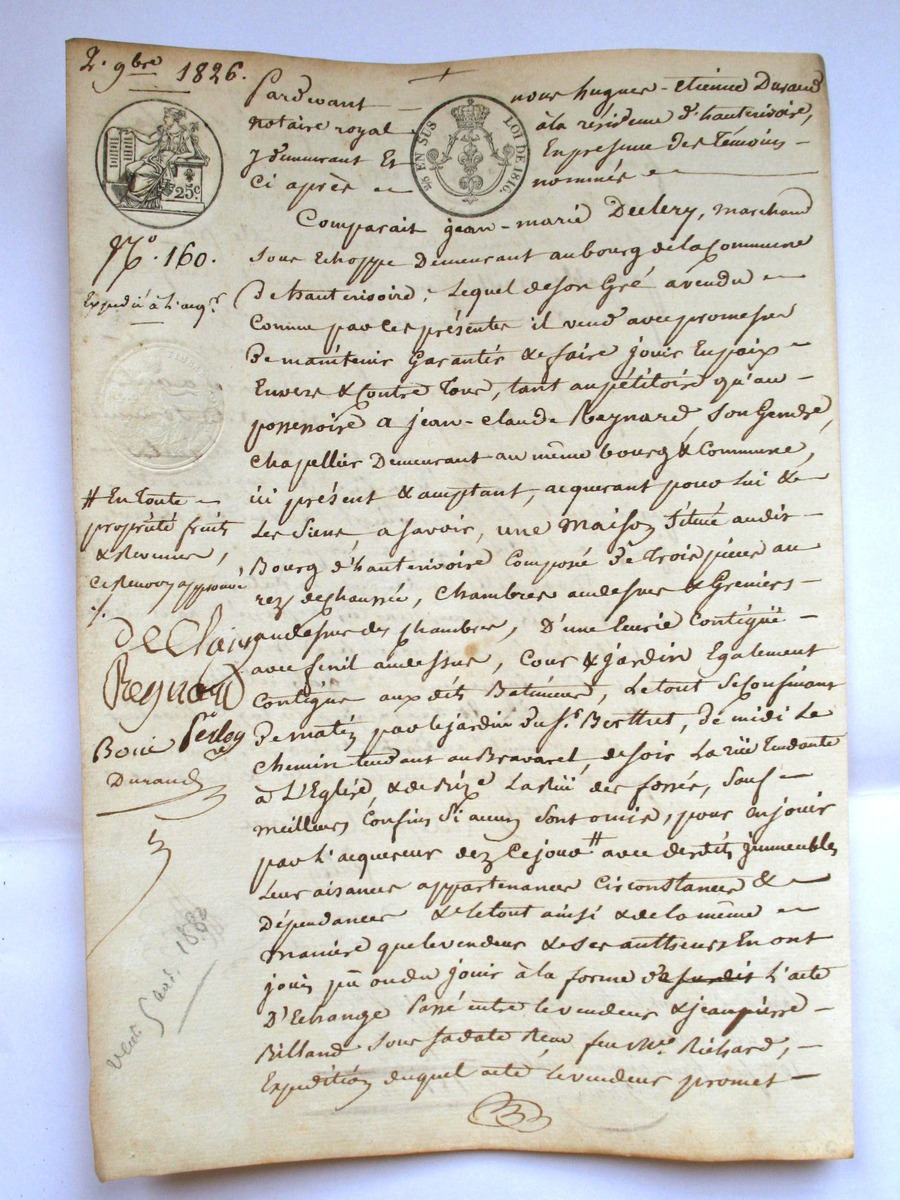 2. 9bre 1826.
25c
EN SUS LOI DE 1816.
Pardevant nous hugues-etienne Durand
notaire royal à la résidence d'hauterivoire,
y demeurant Et En presence des Témoins
Ci après nommés
N.o 160.
Expedié à l'acqr.
Comparait jean-marie Declery, marchand
sous Echoppe Demeurant au bourg de la Commune
De hauterivoire; Lequel de son Gré a vendu
Comme par ces présentes il vend avec promesse
De maintenir Garantir & faire jouir En paix
Envers & Contre Tous, tant au pétitoire qu'au
possessoire a jean-Claude Reynard son Gendre,
Chapellier Demeurant au même bourg & Commune,
ici présent & acceptant, acquerant pour lui &
Les Siens, a savoir, une Maison Située audit
Bourg d'hauterivoire Composé De Trois pièces au
rez de chaussée, Chambres au dessus & Greniers
au dessus des chambres, D'une Ecurie Contiguë
avec fenil au dessus, Cour & jardin Egalement
Contigus aux dits Batiments, Le tout Se Confinant
De matin par le jardin du Sr. Berthet, De midi Le
Chemin tendant au Bravarel, de soir La rüe Tendante
à L'Eglise & de Bize La rüe des fossés, Sauf
meilleurs Confins Si aucuns Sont omis, pour en jouir
par l'acquereur dez Ce jour # avec desdits jmmeubles
Leurs aisances appartenances Circonstances &
Dépendances & Le tout ainsi & de la même
maniere que le vendeur & Ses autheurs En ont
joui pû ou du jouir à la forme de susdit L'acte
D'Echange Passé entre le vendeur & jeanpierre
Billand Sous Sa date Reçu feu Me. Richard,
Expedition duquel acte Le vendeur promet
# En Toute
propriété fruits
& Revenus,
Ce Renvoy approuvé
Reynard
Durand